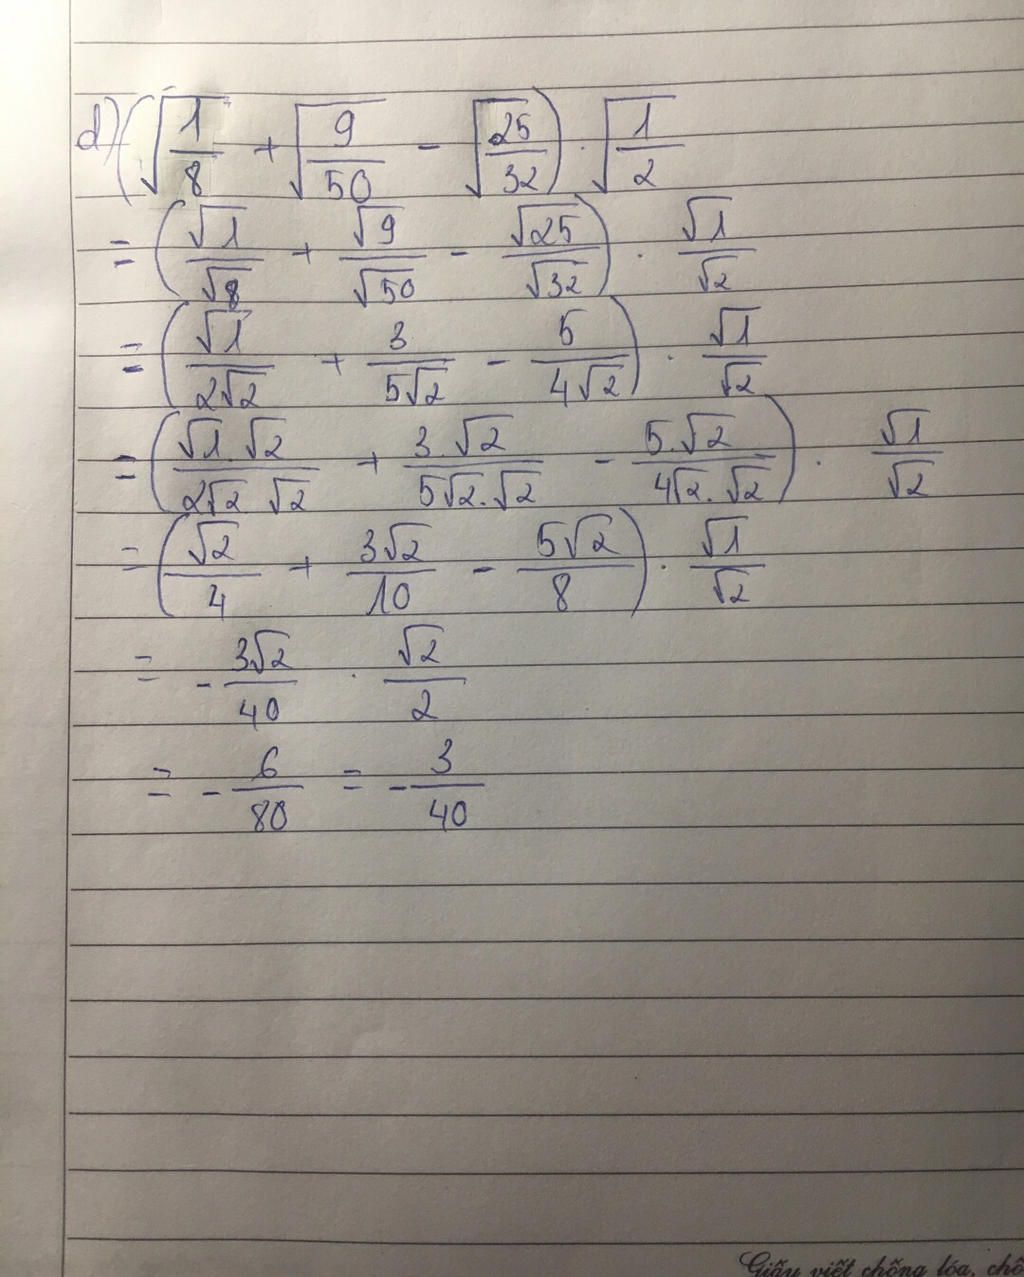 d) (√(1/8) + √(9/50) - √(25/32)) · √(1/2)
= (√1/√8 + √9/√50 - √25/√32) · √1/√2
= (√1/2√2 + 3/5√2 - 5/4√2) · √1/√2
= (√1.√2/2√2 √2 + 3.√2/5√2.√2 - 5.√2/4√2.√2) · √1/√2
= (√2/4 + 3√2/10 - 5√2/8) · √1/√2
= - 3√2/40 · √2/2
= - 6/80 = - 3/40
Giấy viết chống lóa, chố